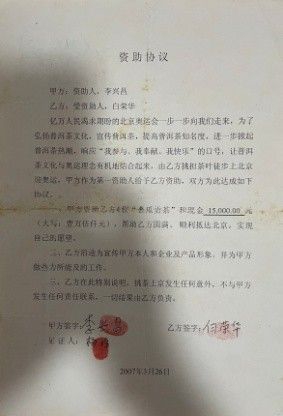 资助协议
甲方：资助人，李兴昌
乙方：受资助人，白荣华
亿万人民渴求期盼的北京奥运会一步一步向我们走来，为了
弘扬普洱茶文化，宣传普洱茶，提高普洱茶知名度，进一步掀起
普洱茶热潮，响应“我参与、我奉献、我快乐”的口号，让普洱
茶文化与奥运理念有机地结合起来，由乙方挑担茶叶徒步上北京
迎奥运，甲方作为第一资助人给予乙方资助，双方为此达成如下
协议。
一、甲方资助乙方4担“贡瓜沱茶”和现金 15,000.00 元
（大写：壹万伍仟元），帮助乙方圆满、顺利抵达北京，实现
自己的愿望。
二、乙方沿途为宣传甲方本人和企业及产品形象，并为甲方
做些力所能及的工作。
三、乙方在此特别说明：挑茶上京发生任何意外，不与甲方
发生任何责任联系，一切结果由乙方负责。
甲方签字：李兴昌
乙方签字：白荣华
见证人：
2007年3月26日